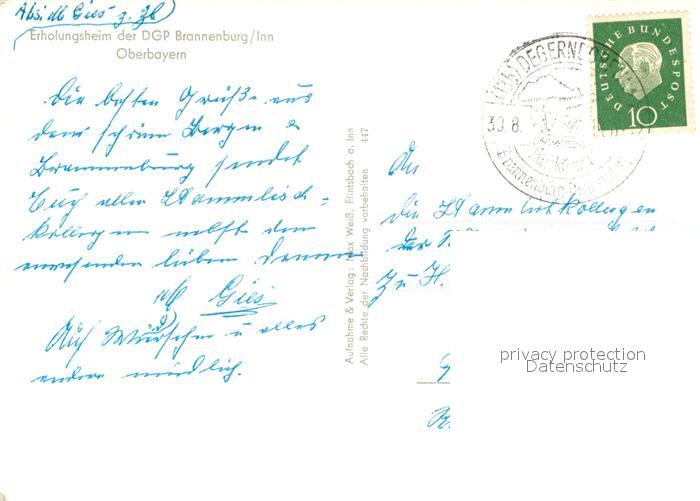 Abs. db Gies z. Zt
Erholungsheim der DGP Brannenburg/Inn
Oberbayern
Die besten Grüße aus
dem schönen Bergen
Brannenburg sendet
Euch allen Stammtisch=
kollegen nebst den
anwesenden lieben Damen
Gies
Auf Wiedersehen u alles
andere mündlich.
Aufnahme & Verlag: Max Weiß, Flintsbach a. Inn
Alle Rechte der Nachbildung vorbehalten 447
DEUTSCHE BUNDESPOST
10
DEGERNDORF
30.8.
Brannenburg
An
die Stammtischkollegen
der
Zu H.
privacy protection
Datenschutz